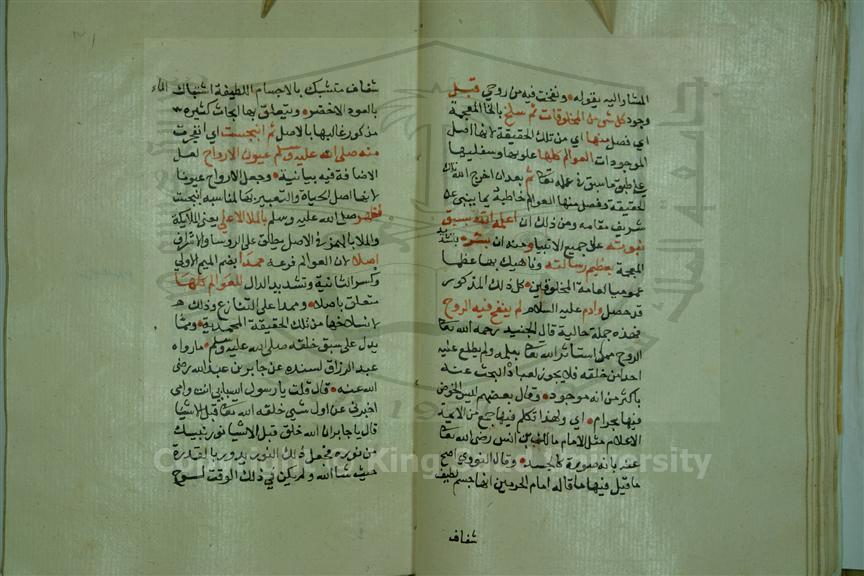 المشار اليه بقوله ونفخت فيه من روحي قبل
وجود كل شي من المخلوقات ثم سلخ بالخا المعجمة
اي فصل منها اي من تلك الحقيقة لانها اصل
الموجودات العوالم كلها علويها وسفليها
على طبق ما سبق في علمه تعا ثم بعد ان اخرج الله تلك
الحقيقة وفصل منها العوالم خاطبه بما ينبي عن
شريف مقامه ومن ذلك ان اعلمه الله بسبق
نبوته على جميع الانبيا ومنه ان بشره بالشد
المعجمة بعظيم رسالته وناهيك بها عظما
عمومها لعامة المخلوقين كل ذلك المذكور
قد حصل وادم عليه السلام لم ينفخ فيه الروح
فهذه جملة حالية قال الجنيد رحمه الله تعا
الروح مما استاثر الله تعا بعلمه ولم يطلع عليه
احد من خلقه فلا يجوز لعباده البحث عنه
باكثر من انه موجود وقال بعضهم ليس الخوض
فيها بحرام اي ولهذا تكلم فيها جمع من الايمة
الاعلام مثل الامام مالك بن انس رضى الله تعا
عنه بانه صورة كالجسد وقال النووي اصح
ما قيل فيها ما قاله امام الحرمين انها جسم لطيف
شفاف
شفاف متشبك بالاجسام اللطيفة اشتباك الماء
بالعود الاخضر ويتعلق بها ابحاث كثيرة
مذكور غالبها بالاصل ثم انبجست اي انفجرت
منه صلى الله عليه وسلم عيون الارواح لعل
الاضافة فيه بيانية وجعل الارواح عيونا
لانها اصل الحياة والتعبير بها لمناسبه انبجست
فظهر صلى الله عليه وسلم بالملا الاعلى يعنى الملايكة
والملا بالهمز في الاصل يطلق على الروسا والاشراف
اصلا لان العوالم فرعه ممدا بضم الميم الاولي
وكسر الثانية وتشديد الدال للعوالم كلها
متعلق باصلا وممدا على التنازع وذلك
لانسلاخها من تلك الحقيقة المحمدية ومما
يدل على سبق خلقه صلى الله عليه وسلم ما رواه
عبد الرزاق لسنده عن جابر بن عبد الله رضى
الله عنه قال قلت يا رسول الله بابي انت وامي
اخبرني عن اول شيي خلقه الله تعا قبل الاشيا
قال يا جابر ان الله خلق قبل الاشيا نور نبيك
من نوره فجعل ذلك النور يدور بالقدرة
حيث شا الله ولم يكن في ذلك الوقت لوح
Copyright © King Saud University